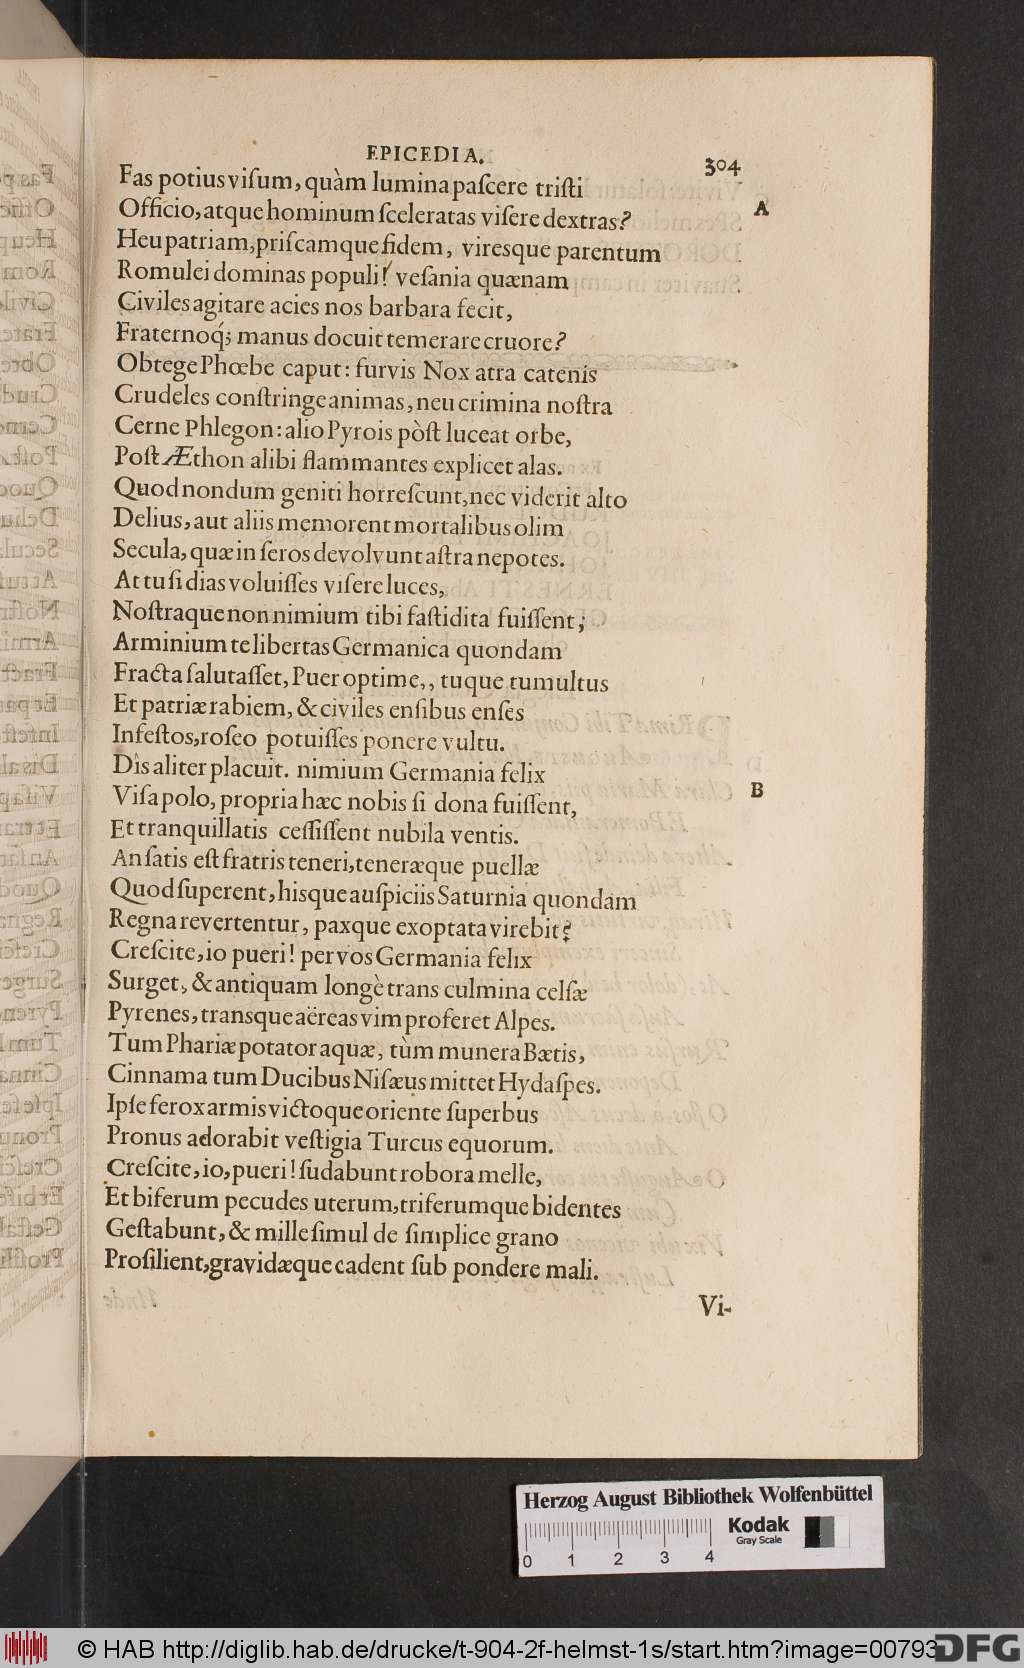 EPICEDIA.
304
Fas potius visum, quàm lumina pascere tristi
A
Officio, atque hominum sceleratas visere dextras?
Heu patriam, priscamque fidem, viresque parentum
Romulei dominas populi! vesania quænam
Civiles agitare acies nos barbara fecit,
Fraternoq́; manus docuit temerare cruore?
Obtege Phœbe caput: furvis Nox atra catenis
Crudeles constringe animas, neu crimina nostra
Cerne Phlegon: alio Pyrois pòst luceat orbe,
Post Æthon alibi flammantes explicet alas.
Quod nondum geniti horrescunt, nec viderit alto
Delius, aut aliis memorent mortalibus olim
Secula, quæ in seros devolvunt astra nepotes.
At tu si dias voluisses visere luces,
Nostraque non nimium tibi fastidita fuissent;
Arminium te libertas Germanica quondam
Fracta salutasset, Puer optime,, tuque tumultus
Et patriæ rabiem, & civiles ensibus enses
Infestos, roseo potuisses ponere vultu.
Dîs aliter placuit. nimium Germania felix
B
Visa polo, propria hæc nobis si dona fuissent,
Et tranquillatis cessissent nubila ventis.
An satis est fratris teneri, teneræque puellæ
Quod superent, hisque auspiciis Saturnia quondam
Regna revertentur, paxque exoptata virebit?
Crescite, io pueri! per vos Germania felix
Surget, & antiquam longè trans culmina celsæ
Pyrenes, transque aëreas vim proferet Alpes.
Tum Phariæ potator aquæ, tùm munera Bætis,
Cinnama tum Ducibus Nisæus mittet Hydaspes.
Ipse ferox armis victoque oriente superbus
Pronus adorabit vestigia Turcus equorum.
Crescite, io, pueri! sudabunt robora melle,
Et biferum pecudes uterum, triferumque bidentes
Gestabunt, & mille simul de simplice grano
Prosilient, gravidæque cadent sub pondere mali.
Vi-
Herzog August Bibliothek Wolfenbüttel
Kodak
Gray Scale
0 1 2 3 4
© HAB http://diglib.hab.de/drucke/t-904-2f-helmst-1s/start.htm?image=00793
DFG